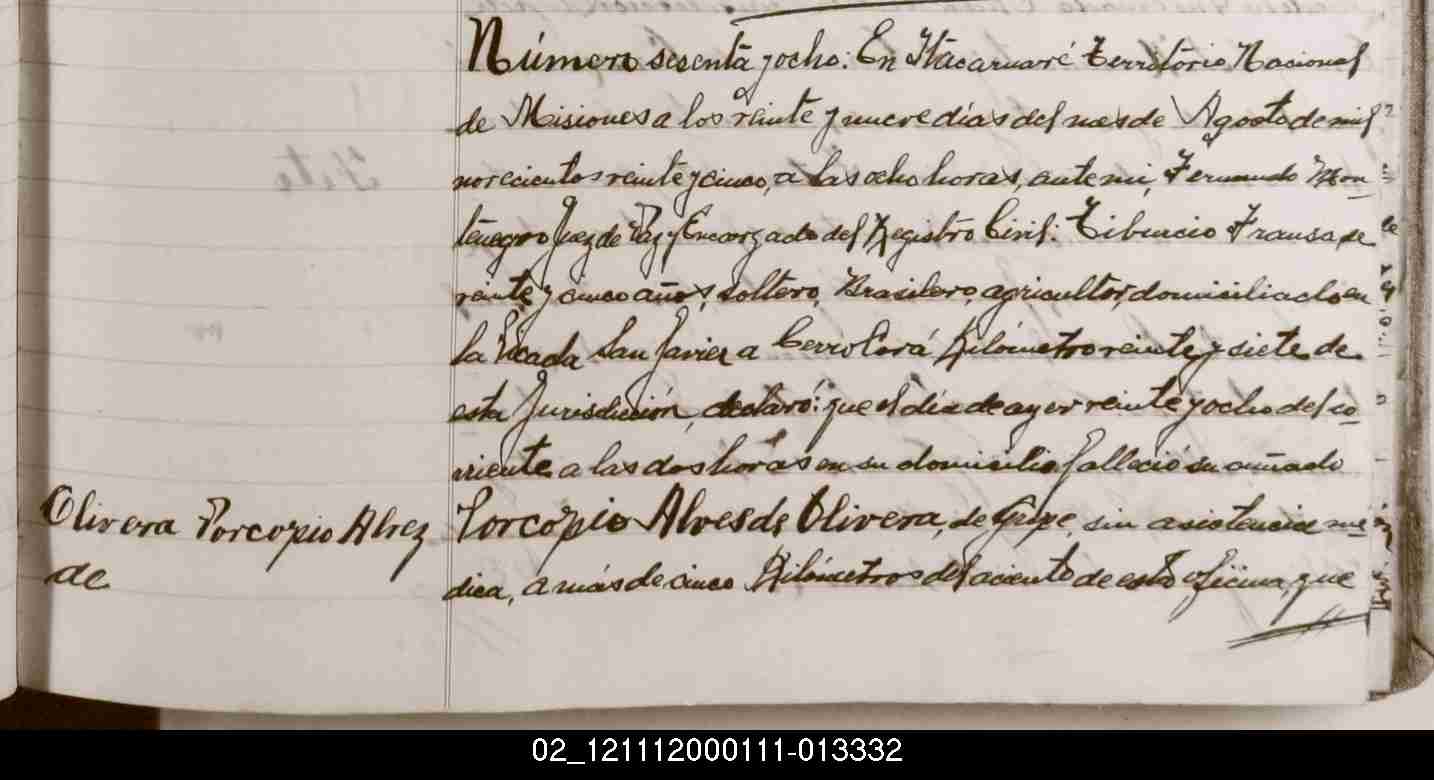 Número sesenta y ocho: En Itacaruaré Territorio Nacional
de Misiones a los veinte y nueve días del mes de Agosto de mil
novecientos veinte y cinco, a las ocho horas, ante mi, Fernando Mon-
tenegro Juez de Paz y Encargado del Registro Civil: Tiburcio Fransa de
veinte y cinco años, soltero, Brasilero, agricultor, domiciliado en
la Picada San Javier a Cerro Corá Kilómetro veinte y siete de
esta Jurisdicion, declaró: que el día de ayer veinte y ocho del co-
rriente a las dos horas en su domicilio falleció su cuñado
Olivera Porcopio Alvez
de
Porcopio Alves de Olivera, de Gripe, sin asistencia me-
dica, a más de cinco Kilómetros del aciento de esta oficina, que
02_121112000111-013332